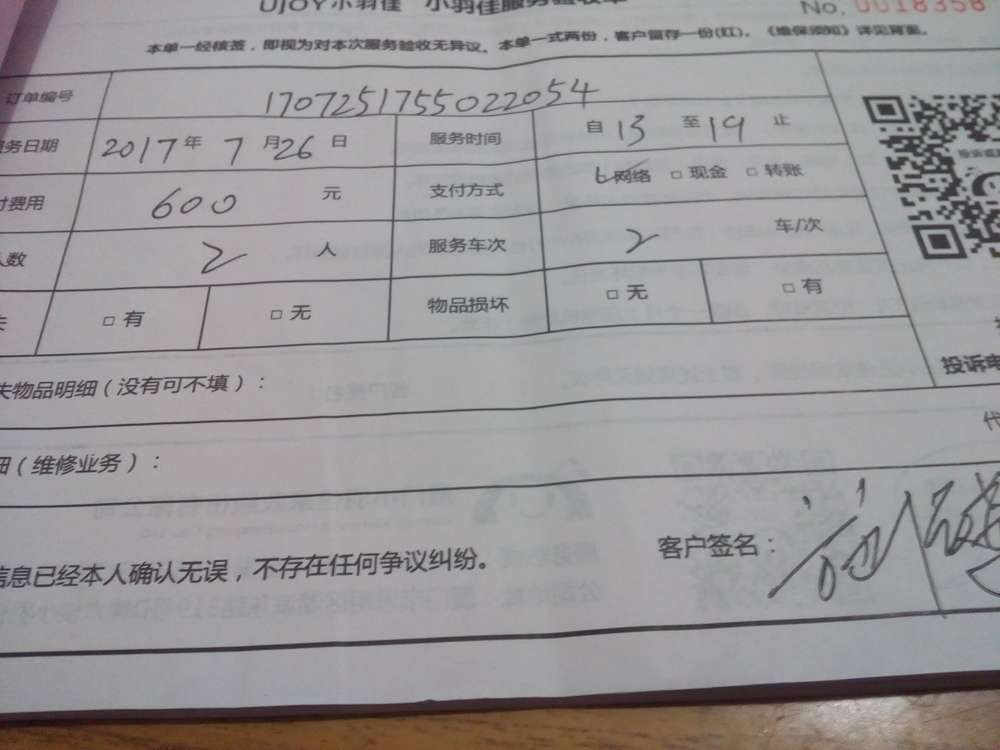 UJOY小羽佳 小羽佳服务验收单
No. 0018358
本单一经核签，即视为对本次服务验收无异议。本单一式两份，客户留存一份(红)。《维保须知》详见背面。
订单编号 1707251755022054
务日期 2017年7月26日 服务时间 自13至19止
付费用 600元 支付方式 网络 □现金 □转账
人数 2人 服务车次 2车/次
□有 □无 物品损坏 □无 □有
失物品明细（没有可不填）：
投诉电
代
细（维修业务）：
信息已经本人确认无误，不存在任何争议纠纷。
客户签名：